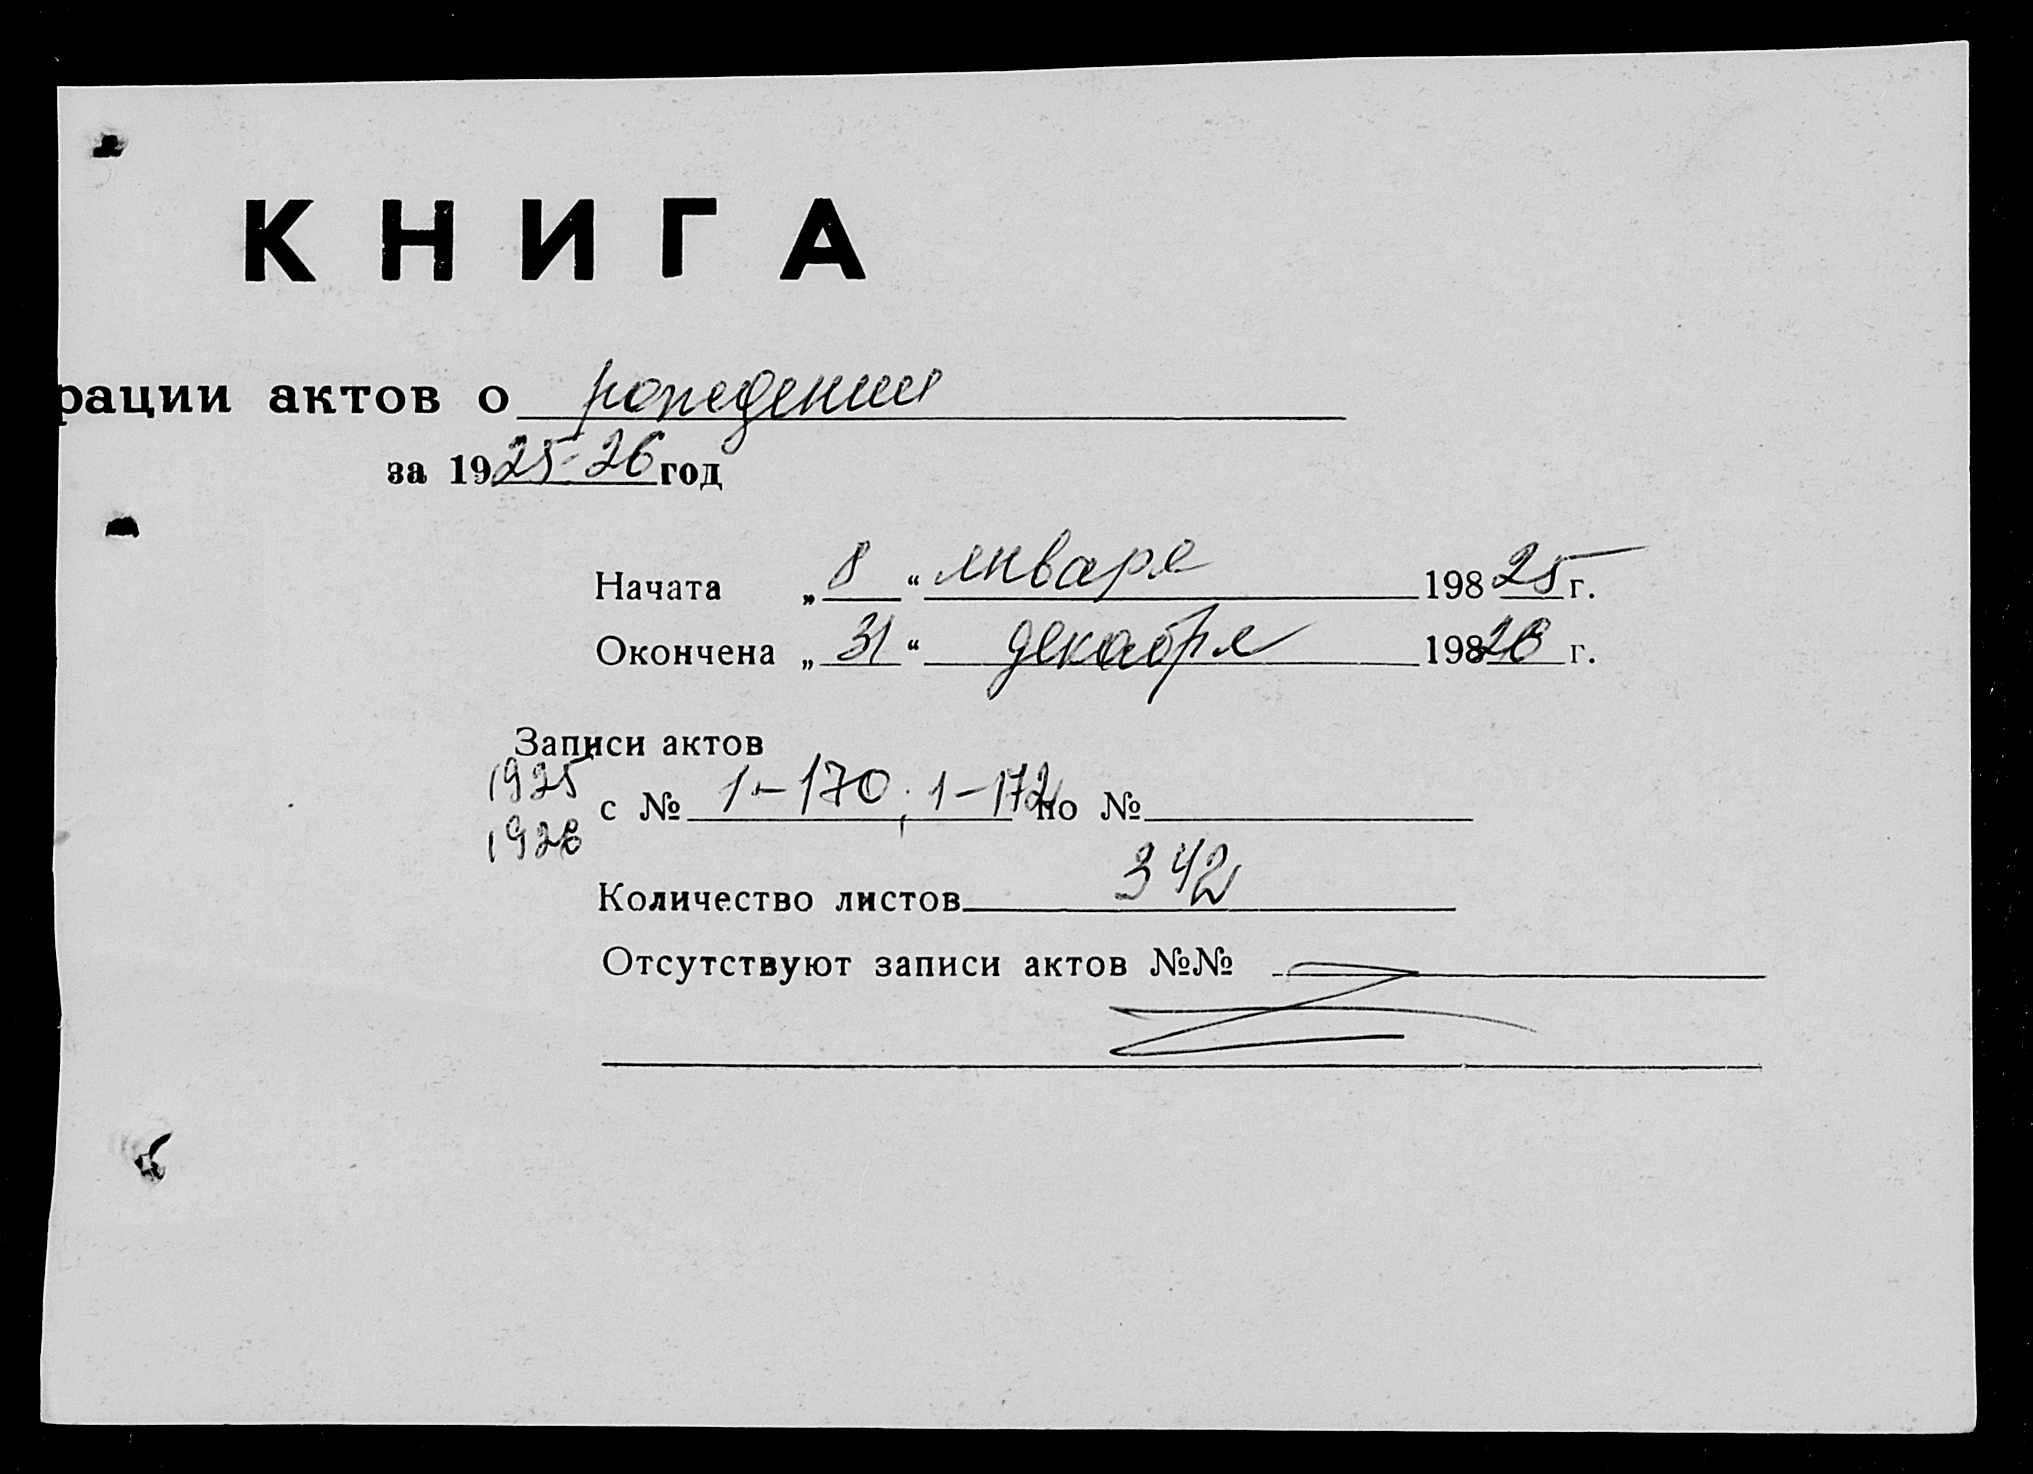 КНИГА
рации актов о рождении
за 1925-26 год
Начата „8“ января 198 25 г.
Окончена „31“ декабря 198 26 г.
Записи актов
1925
с № 1-170; 1-172 по №
1926
Количество листов 342
Отсутствуют записи актов №№